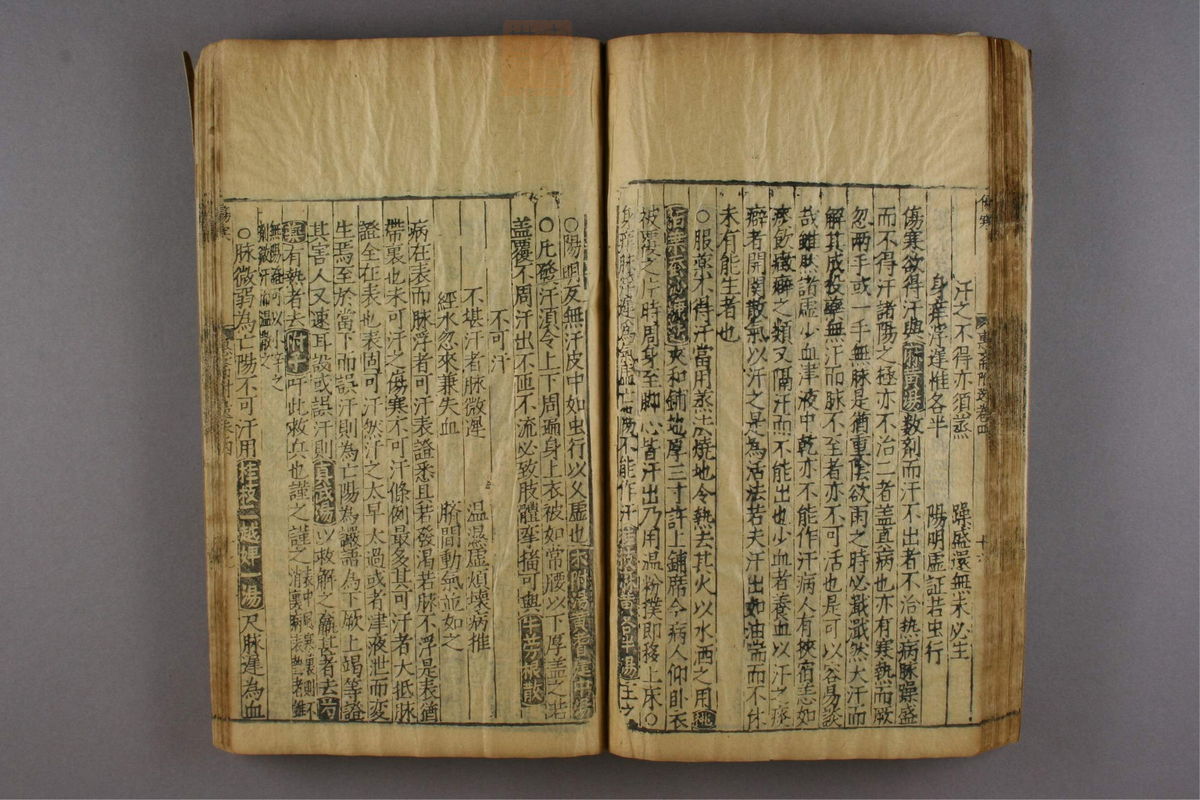 汗之不得亦須蒸　躁盛還無未必生
身痒浮遲惟各半　陽明虛証若虫行
傷寒欲得汗與麻黃湯數劑而汗不出者不治熱病脉躁盛
而不得汗諸陽之極亦不治二者蓋眞病也亦有寒熱而厥
忽两手或一手無脉是猶重陰欲雨之時必濈濈然大汗而
解其或投藥無汗而脉不至者亦不可活也是可以容易談
哉雖然諸虛少血津液中乾亦不能作汗病人有挾宿恙如
痰飲癥癖之類又隔汗而不能出也少血者養血以汗之痰
癖者開關散氣以汗之是為活法若夫汗出如油喘而不休
未有能生者也
○服藥不得汗當用蒸法燒地令熱去其火以水洒之用桃
夾和鋪地厚三寸許上鋪席令病人仰卧衣
被覆之片時周身至脚心皆汗出乃用温粉撲即移上床○
不能作汗桂枝麻黃各半湯主之
○陽明反無汗皮中如虫行以久虛也术附湯黃耆建中湯
○凡發汗須令上下周遍身上衣被如常腰以下厚盖之若
盖覆不周汗出不匝不流必致肢體拏搐可與牛蒡根散
不可汗
不堪汗者脉微遲　温温虛煩壊病推
經水忽來兼失血　臍間動氣並如之
病在表而脉浮者可汗表證悉且若發渴若脉不浮是表猶
帶裏也未可汗之傷寒不可汗條例最多其可汗者大抵脉
證全在表也表固可汗然汗之太早太過或者津液泄而変
生焉至於當下而誤汗則為亡陽為讝語為下厥上竭等證
其害人又速耳設或誤汗則眞武湯以救解之羸甚者去芍
藥有熱者去附子吁此救兵也謹之謹之
○脉微弱為亡陽不可汗用桂枝二越婢一湯尺脉遲為血